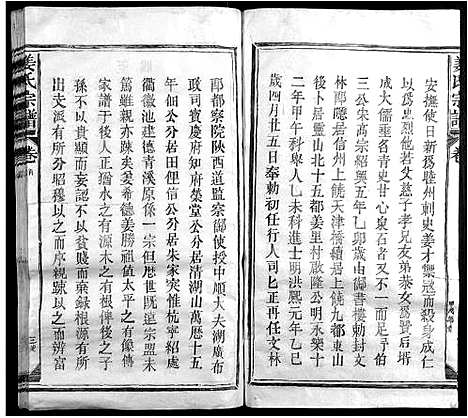 姜氏宗譜
卷
安撫使日新為壁州刺史姜才樂寇而殺身成仁
以為史臣褒而若艾慈子孝兄友弟恭女為贊后壻
成大儒垂名青史甘心泉石者又不一而足予伯
三公宋高宗紹興五年乙卯歲由御書樓勅封文
林郎隱居信州上饒天津橋續居上饒九都東山
卜居靈山北十五都姜里村啟隆公明永樂十
二年甲午科舉人己未科進士明洪熙元年乙
歲四月廿五日奉勅初任行人司乞正再任文林
郎都察院陝西道監察御使授中順大夫湖廣布
政司寶慶府知府榮堂公分居清湖山萬曆十五
公分居田俚信公分居朱家突惟杭寧紹處
衢徽池建德青溪原係一宗但歷世既遠宗盟未
篤雖親亦踈矣爰希德姜勝祖值太平之有像傳
家譜于後人正猶水之有源木之有根不以
孫不以貴顯而妄認不以貧賤而棄録根源有所
出支派分明昭穆以之而序親疏以之而辨富